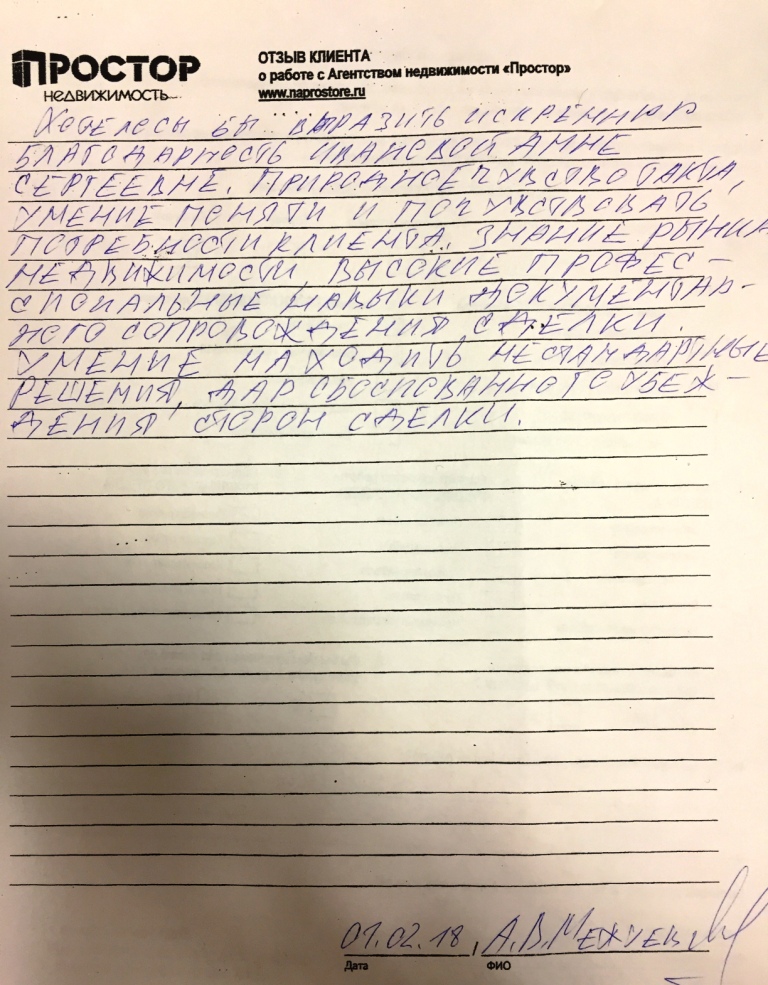 ПРОСТОР
НЕДВИЖИМОСТЬ
ОТЗЫВ КЛИЕНТА
о работе с Агентством недвижимости «Простор»
www.naprostore.ru
Хотелось бы выразить искреннюю
благодарность Ивановой Анне
Сергеевне. Природное чувство такта,
умение понять и почувствовать
потребности клиента. Знание рынка
недвижимости, высокие профес-
сиональные навыки документаль-
ного сопровождения сделки.
Умение находить нестандартные
решения, дар обоснованного убеж-
дения сторон сделки.
01.02.18, А.В. Межуев
Дата ФИО